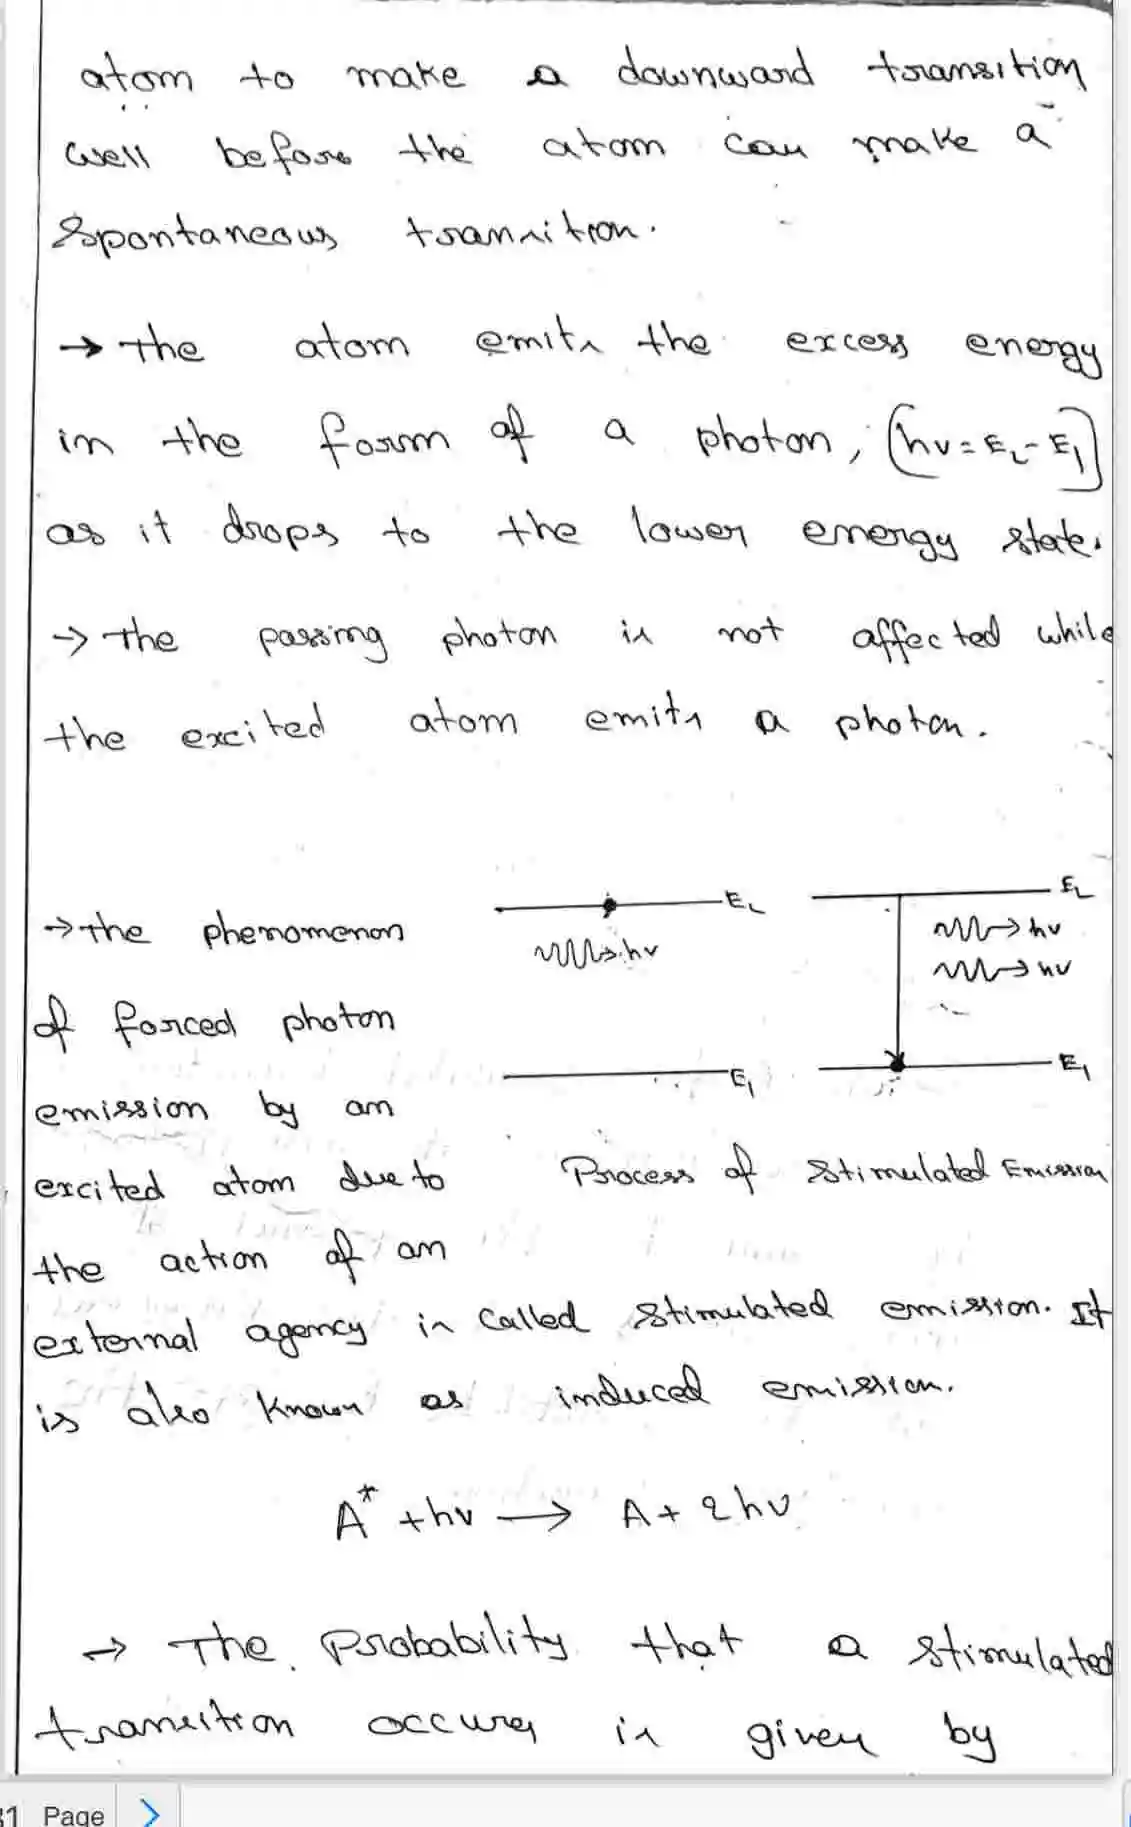 atom to make a downward transition
well before the atom can make a
spontaneous transition.
→ The atom emits the excess energy
in the form of a photon, (hν = E2 - E1]
as it drops to the lower energy state.
→ The passing photon is not affected while
the excited atom emits a photon.
→ The phenomenon
of forced photon
emission by an
excited atom due to
the action of an
external agency is called stimulated emission. It
is also known as induced emission.
E2
hν
E1
E2
hν
hν
E1
Process of Stimulated Emission
A* + hν → A + 2hν
→ The Probability that a stimulated
transition occurs is given by
31 Page >